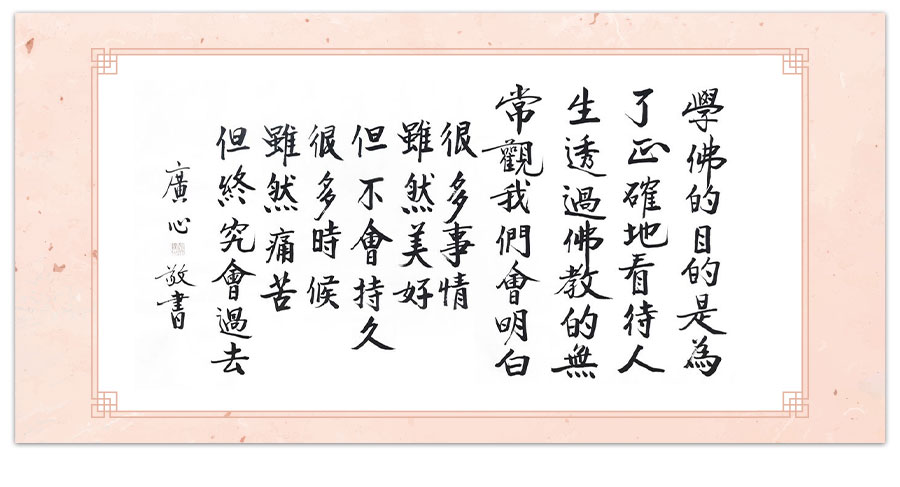 學佛的目的是為
了正確地看待人
生透過佛教的無
常觀我們會明白
很多事情
雖然美好
但不會持久
很多時候
雖然痛苦
但終究會過去
廣心敬書